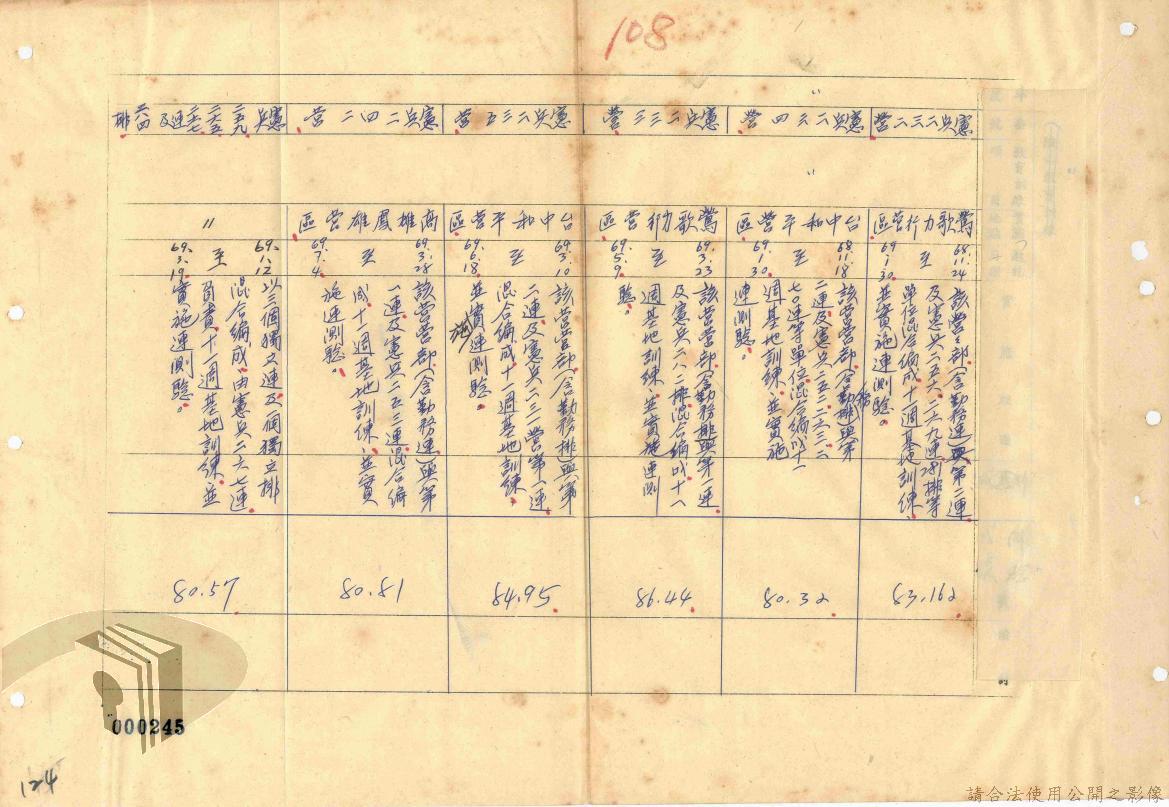 108
〃
憲兵二三二營
〃
鶯歌力行營區
68.11.24
至
69.1.30
該營營部(含勤務連)與第二連
單位混合編成十一週基地訓練、
並實施連測驗。
83.162
憲兵二三四營
台中和平營區
68.11.18
至
69.1.30
該營營部(含勤務排)與第
七〇連等單位混合編成十一
週基地訓練、並實施
連測驗。
80.32
憲兵二三三營
鶯歌力行營區
69.3.23
至
69.5.9
該營營部(含勤務排)與第一連
及憲兵二八二排混合編成十八
週基地訓練、並實施連測
驗。
86.44
憲兵二三五營
台中和平營區
69.3.10
至
69.6.18
該營營部(含勤務排)與第
二連、及憲兵二三一營第一連
混合編成十一週基地訓練、
並實施連測驗。
84.95
憲兵二四二營
高雄鳳雄營區
69.3.28
至
69.7.4
該營營部(含勤務連)與第
一連及憲兵二五三連混合編
成十一週基地訓練、並實
施連測驗。
80.81
憲兵
連及
排
〃
69.1.12
至
69.3.19
以三個獨立連及一個獨立排
混合編成、由憲兵二六七連
負責、十一週基地訓練、並
實施連測驗。
80.57
000245
124
請合法使用公開之影像